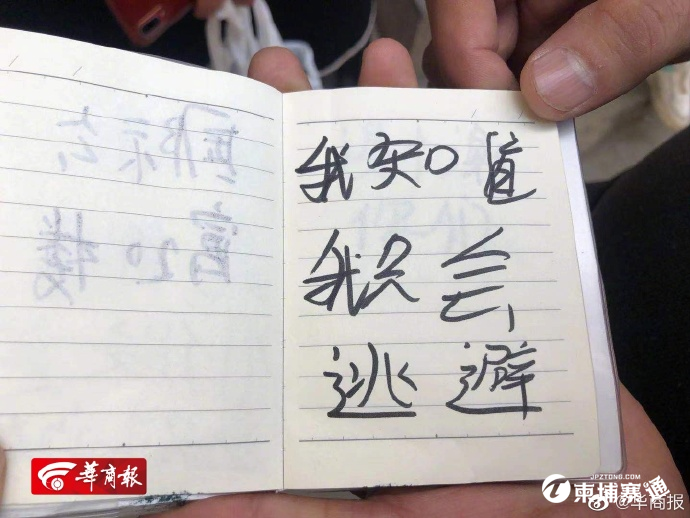 我知道
我只会
逃避
華商報
JPZTONG.COM
柬埔寨通
@华商报